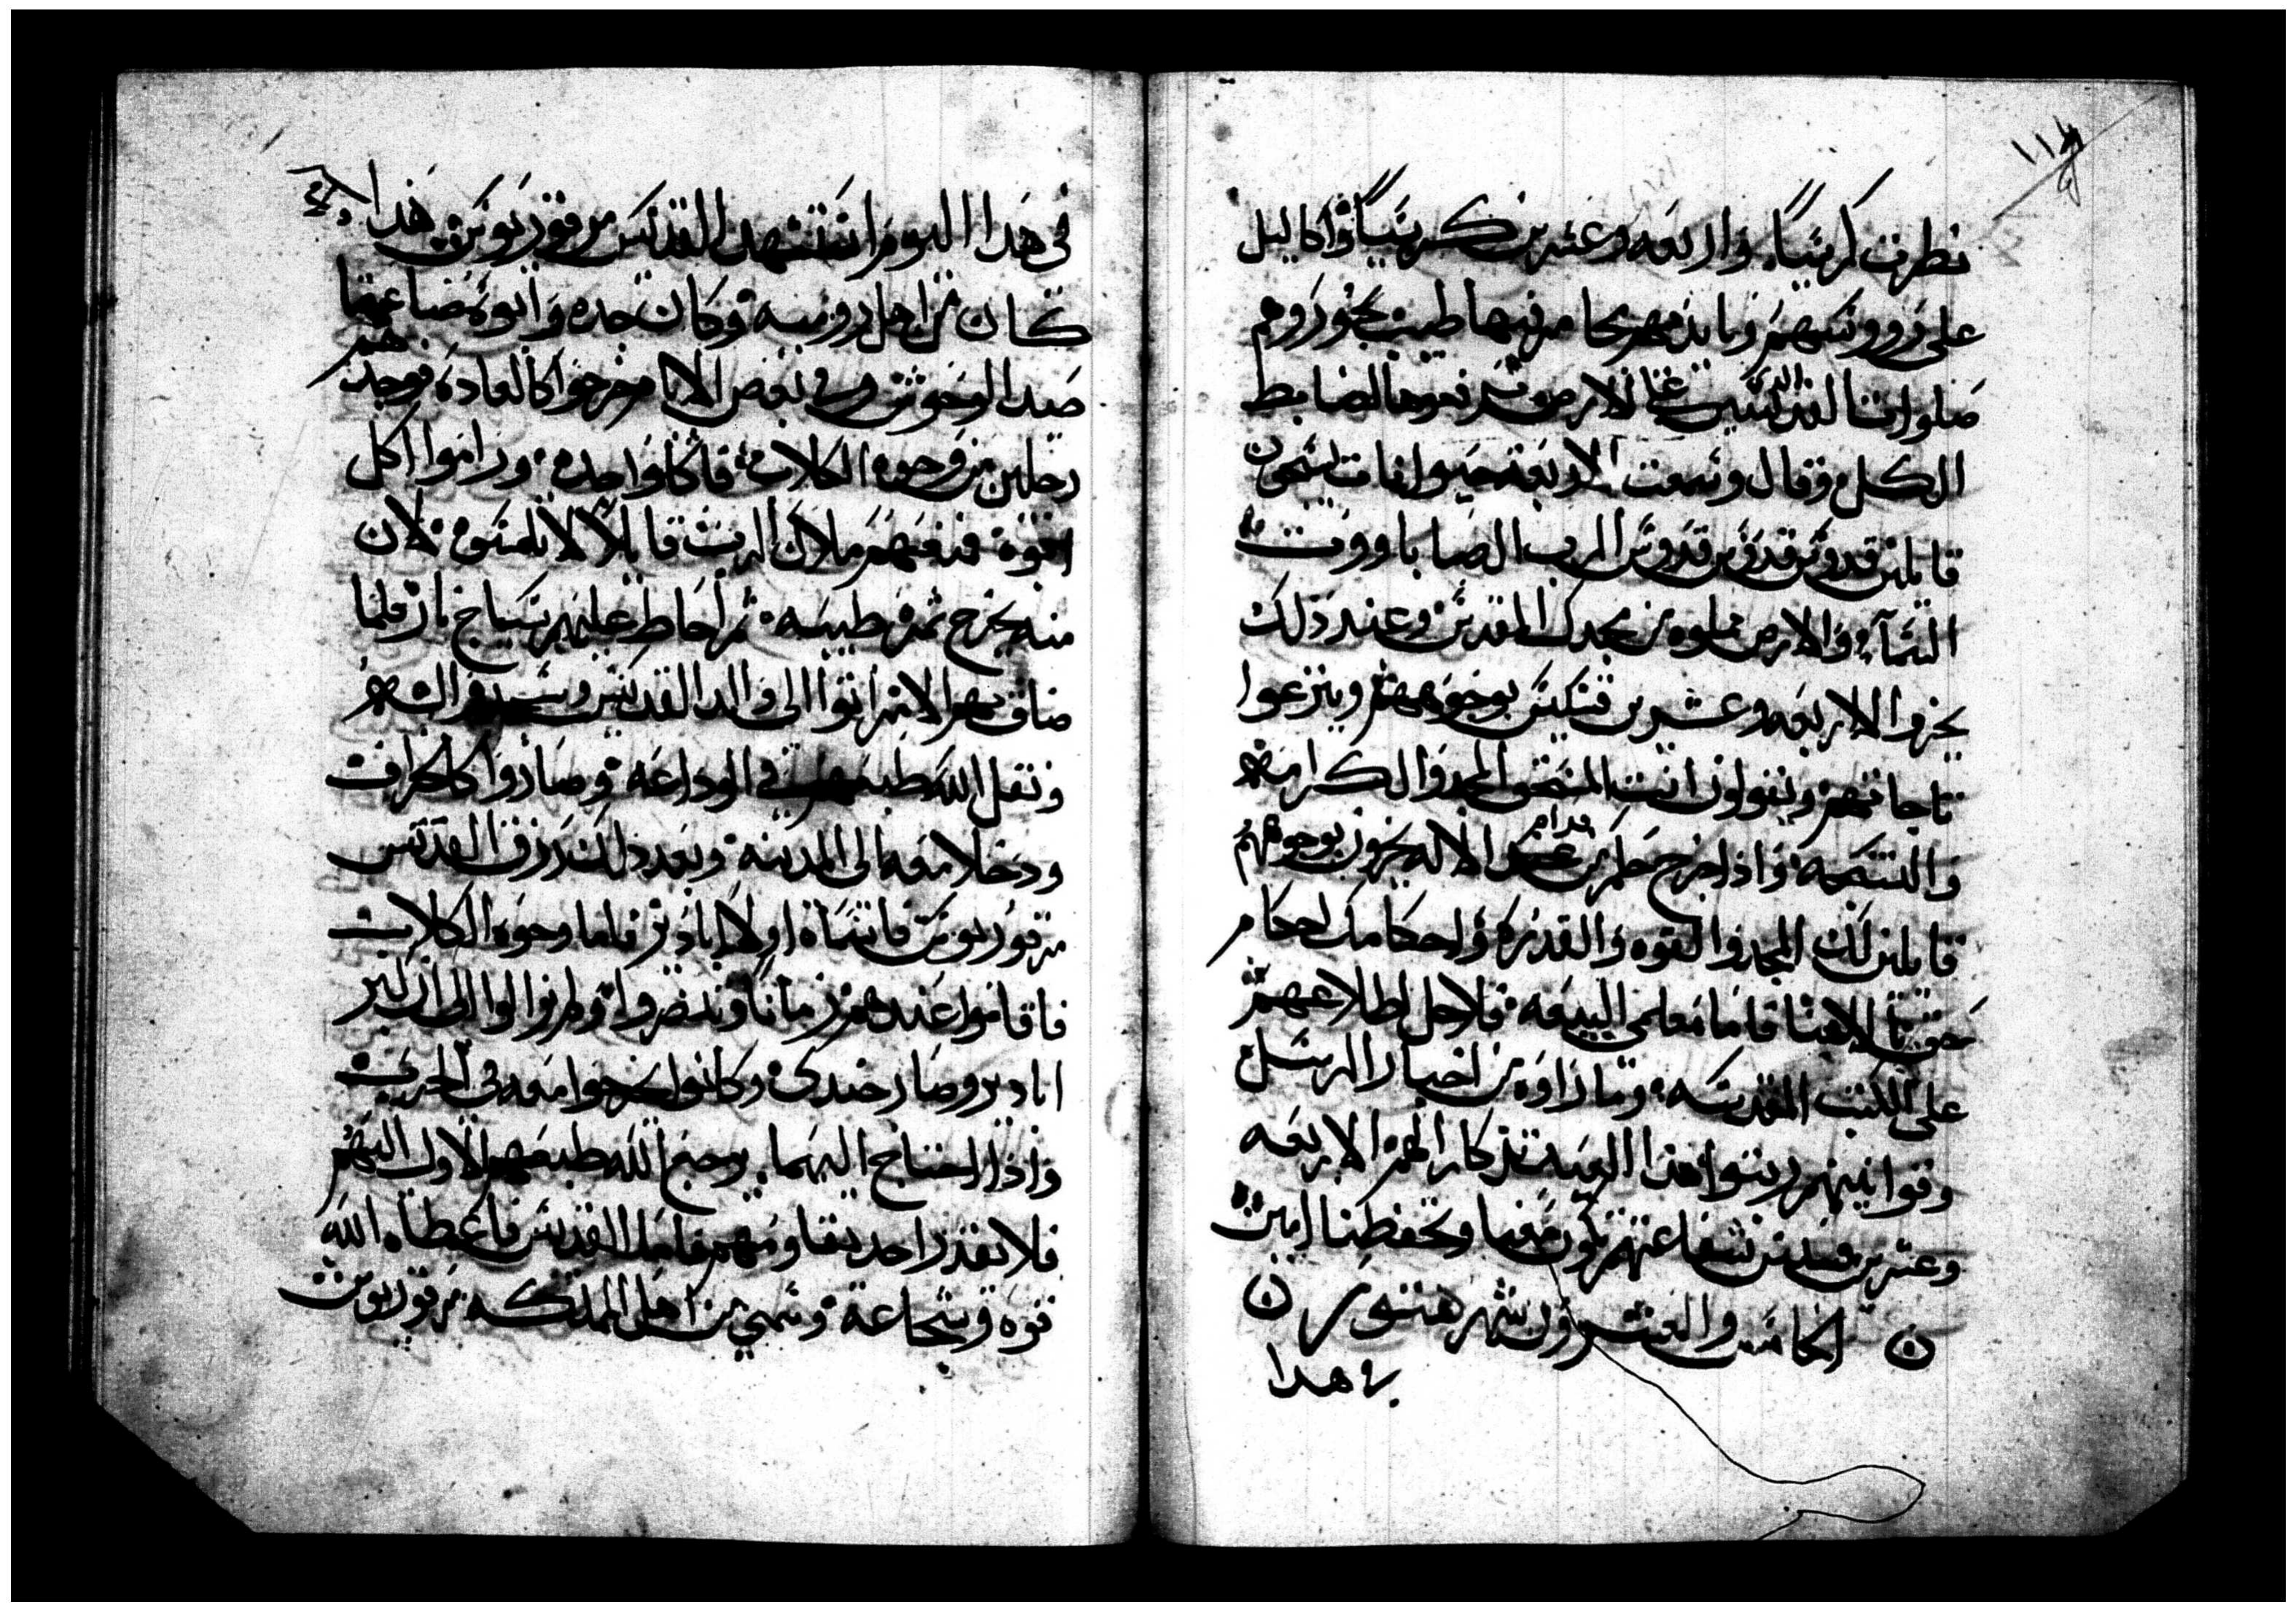 ١١٨
نظرت كرسياً واربعه وعشرين كرسياً واكاليل
على رووسهم وبايديهم مجامر فيها طيب بخور وهم
صلوات القديسين الذين على الارض يرفعوها لضابط
الكل وقال وسمعت الاربعه حيوانات يسبحون
قايلين قدوس قدوس قدوس الرب الصاباووت
السمآء والارض مملوه من مجدك المقدس وعند ذلك
يخروا الاربعه وعشرين قسيس بوجوههم وينزعوا
تاجاتهم ويقولون انت المستحق المجد والكرامه
والتسبحه واذا خرج حكم من قدام الاله يخرون بوجوههم
قايلين لك المجد والقوه والقدره واحكامك احكام
حق يا الاهنا فاما معلمي البيعه فلاجل اطلاعهم
على الكتب المقدسه وما راوه من اخبار الرسل
وقوانينهم رتبوا هذا العيد تذكار لهم الاربعه
وعشرين قسيس شفاعتهم تكون معنا وتحفظنا امين
الخامس والعشرون شهر هتور
في هدا
في هدا اليوم استشهد القديس مرقوريوس هذا
كان من اهل روميه وكان جده وابوه صناعتهما
صيد الوحوش وفي بعض الايام خرجوا كالعاده فوجدهم
رجلين من وجوه الكلاب فاكلوا جده وراموا اكل
ابوه فمنعهم ملاك الرب قايلاً لا تلمسوه لان
منه يخرج ثمره طيبه ثم احاط عليهم بسياج نار فلما
ضاق بهم الامر اتوا الى والد القديس وسجدوا له
ونقل الله طبعهم في الوداعه وصاروا كالخراف
ودخلا معه الى المدينه وبعد ذلك رزق القديس
مرقوريوس فاسماه اولا اباديروس فاما وجوه الكلاب
فاقاموا عندهم زماناً وتنصروا ولم يزالوا الى ان كبر
اباديرو وصار جندي وكانوا يخرجوا معه في الحرب
واذا احتاج اليهما يرجع الله طبعهم الاول اليهم
فلا يقدر احد يقاومهم فاما القديس فاعطاه الله
قوه وشجاعة وسمي من اهل المملكه مرقوريوس